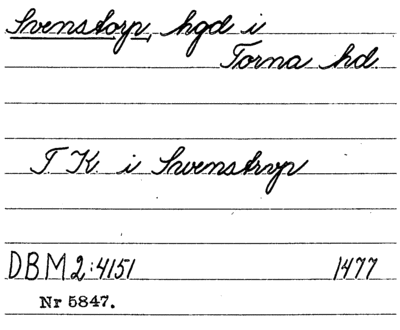 Svenstorp, hgd i
Torna hd
T K i Swenstrvp
DBM 2:4151 1477
Nr 5847.